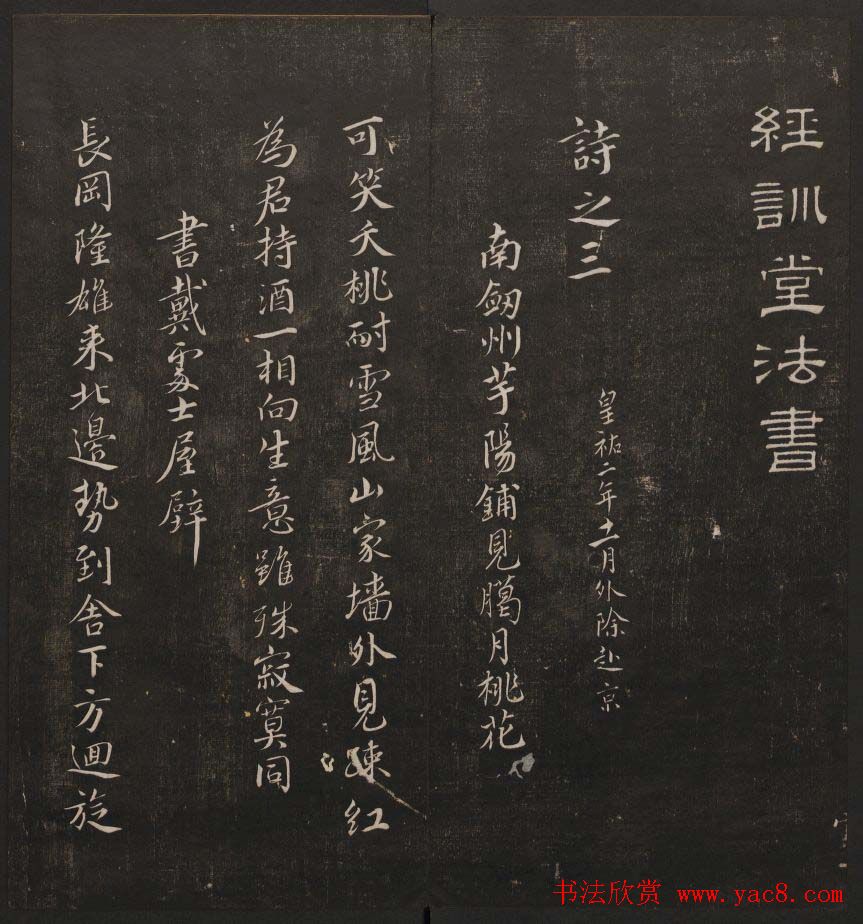 經訓堂法書
詩之三
皇祐二年十一月外除赴京
南劔州芋陽鋪見臈月桃花
可笑夭桃耐雪風山家墻外見踈紅
為君持酒一相向生意雖殊寂寞同
書戴處士屋壁
長岡隆雄来北邊勢到舎下方迴旋
书法欣赏 www.yac8.com